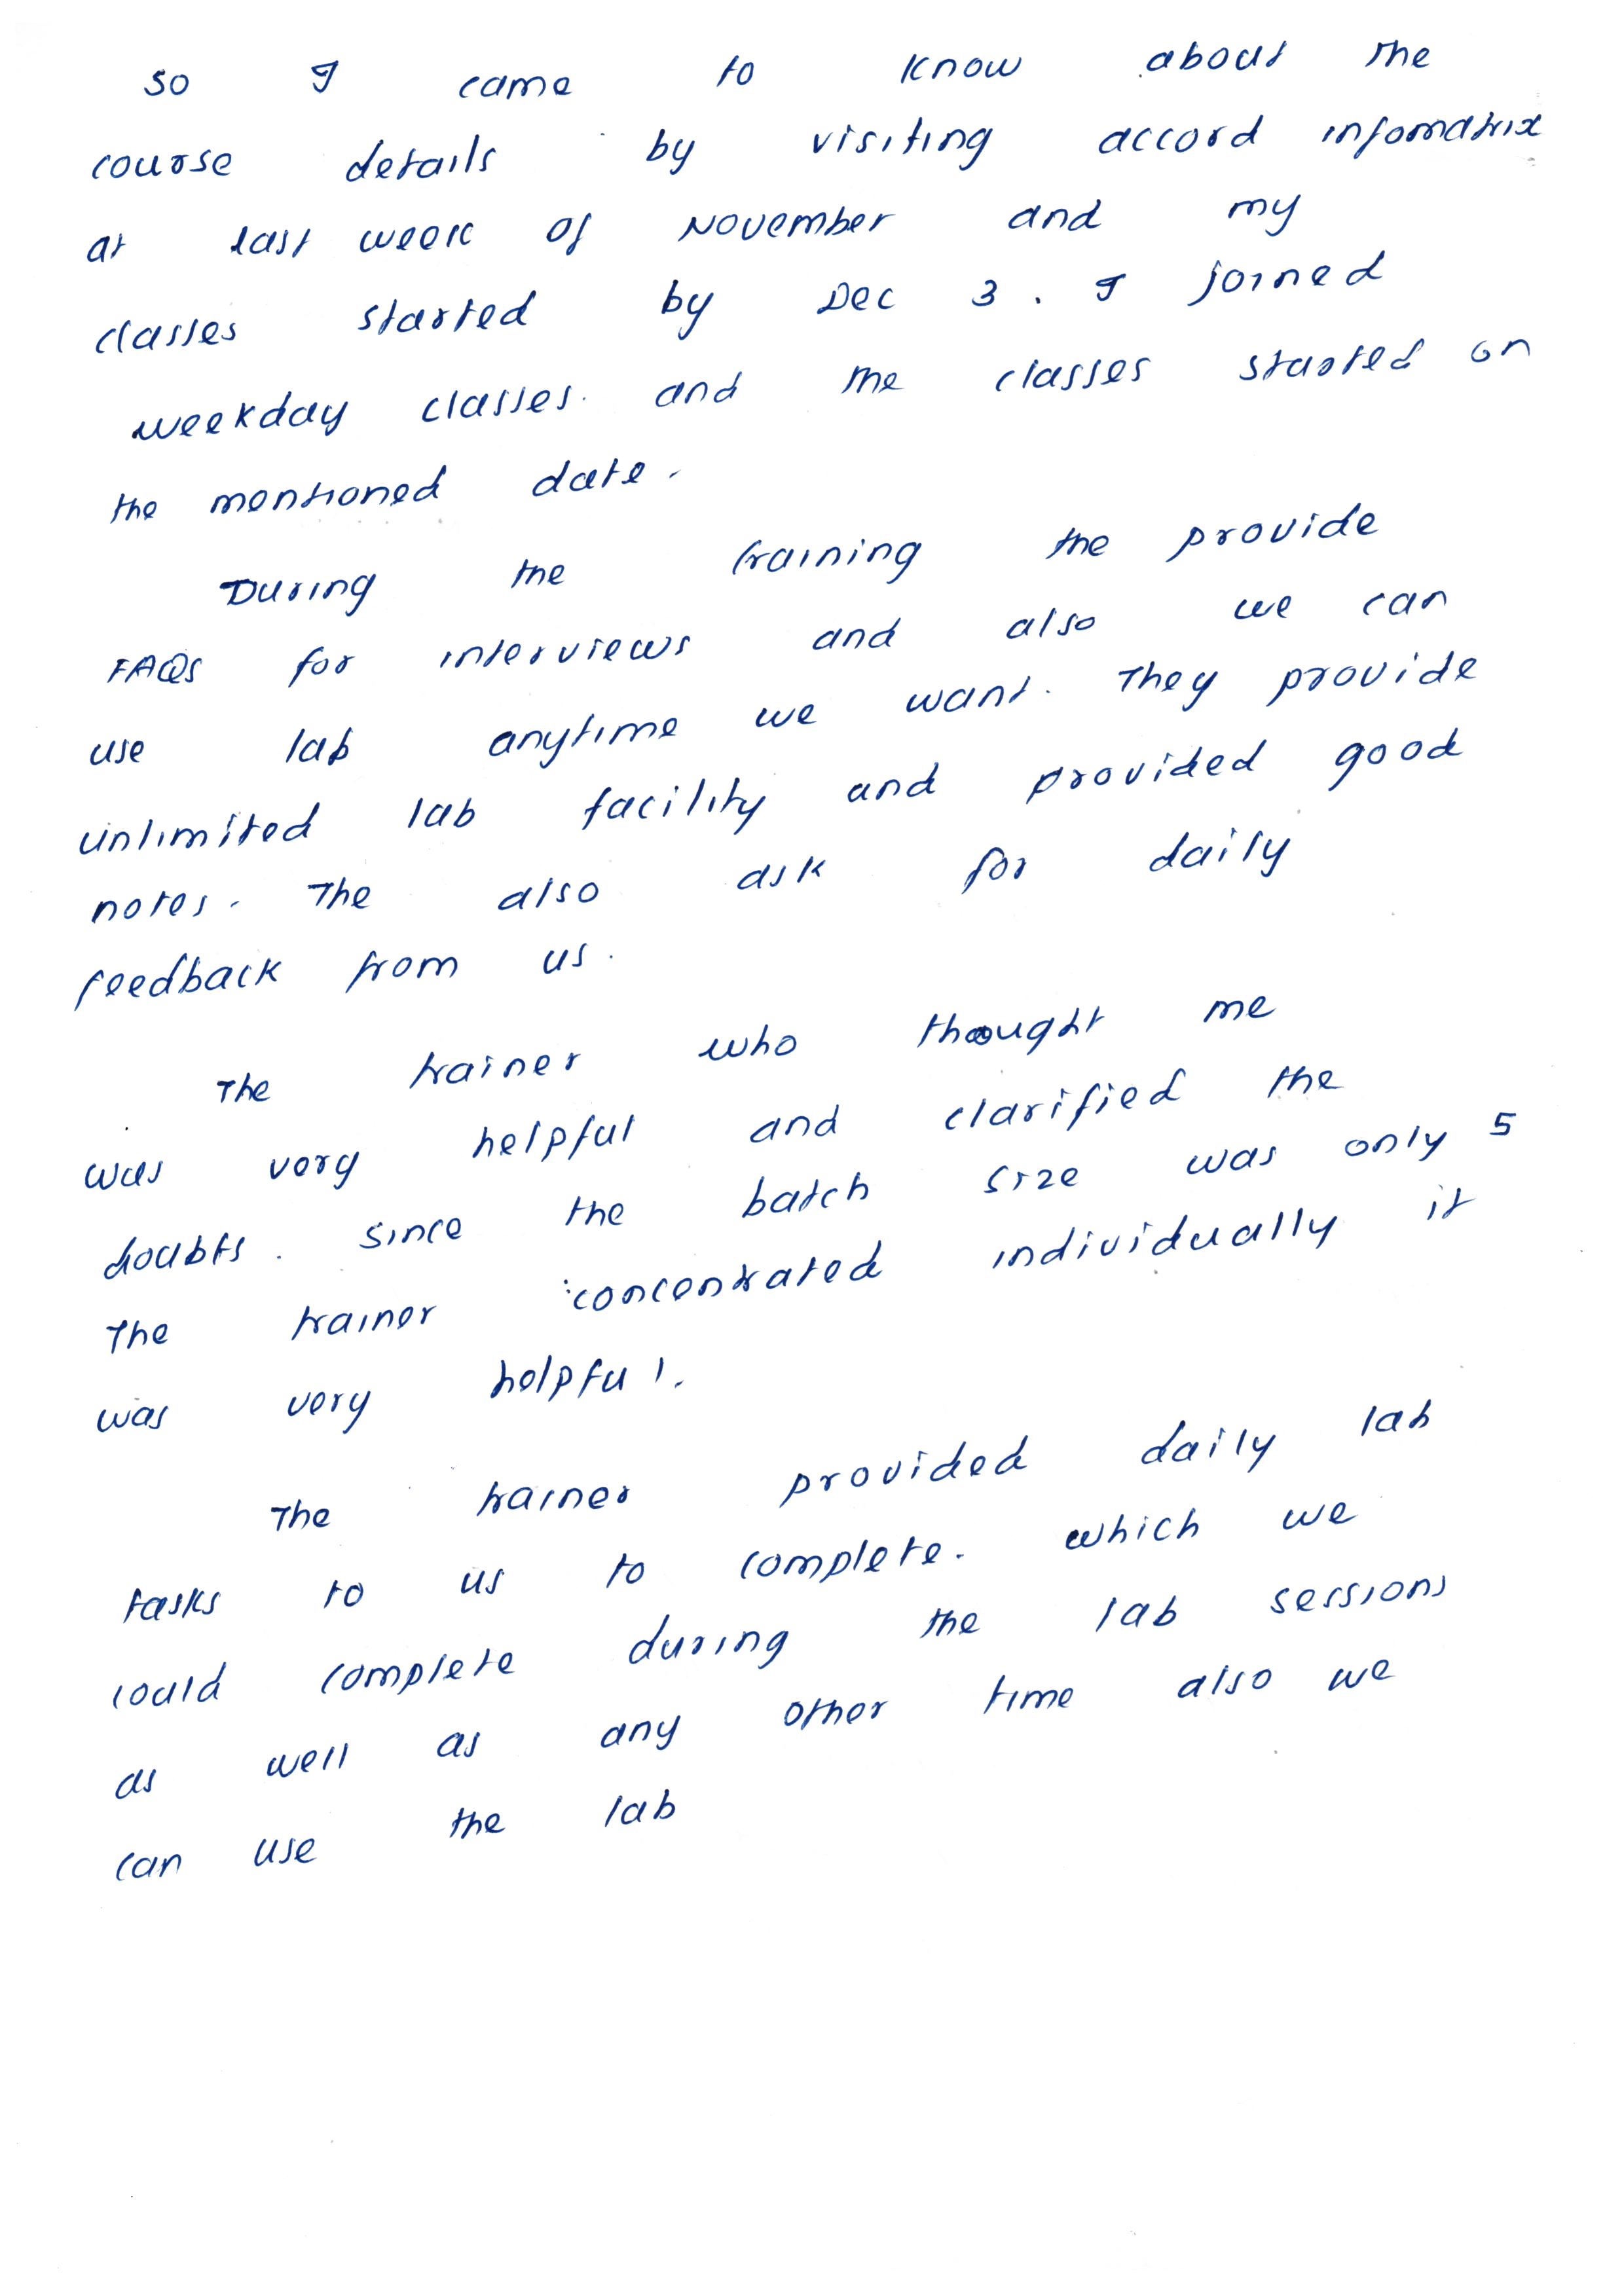 So I came to know about the
course details by visiting accord infomatrix
at last week of November and my
classes started by Dec 3. I joined
weekday classes. and the classes started on
the mentioned date.
During the training the provide
FAQs for interviews and also we can
use lab anytime we want. They provide
unlimited lab facility and provided good
notes. The also ask for daily
feedback from us.
The trainer who thought me
was very helpful and clarified the
doubts. Since the batch size was only 5
The trainer concentrated individually it
was very helpful.
The trainer provided daily lab
tasks to us to complete. which we
could complete during the lab sessions
as well as any other time also we
can use the lab